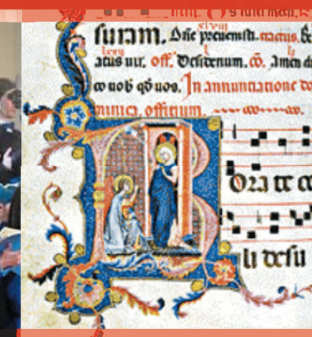 suram. Dñe preuenisti. tractus. B
atus uir. off. Desiderium. cō. Amen di
co uob qđ uos. In annunciatione do
minica. officium.
Rora te ce
li desu